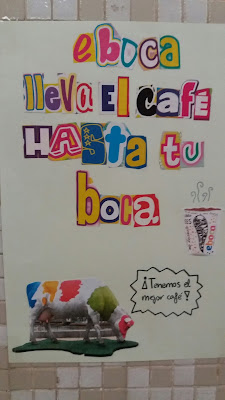 eboca
lleva El café
HASta tu
boca
eboca
¡Tenemos el
mejor café!